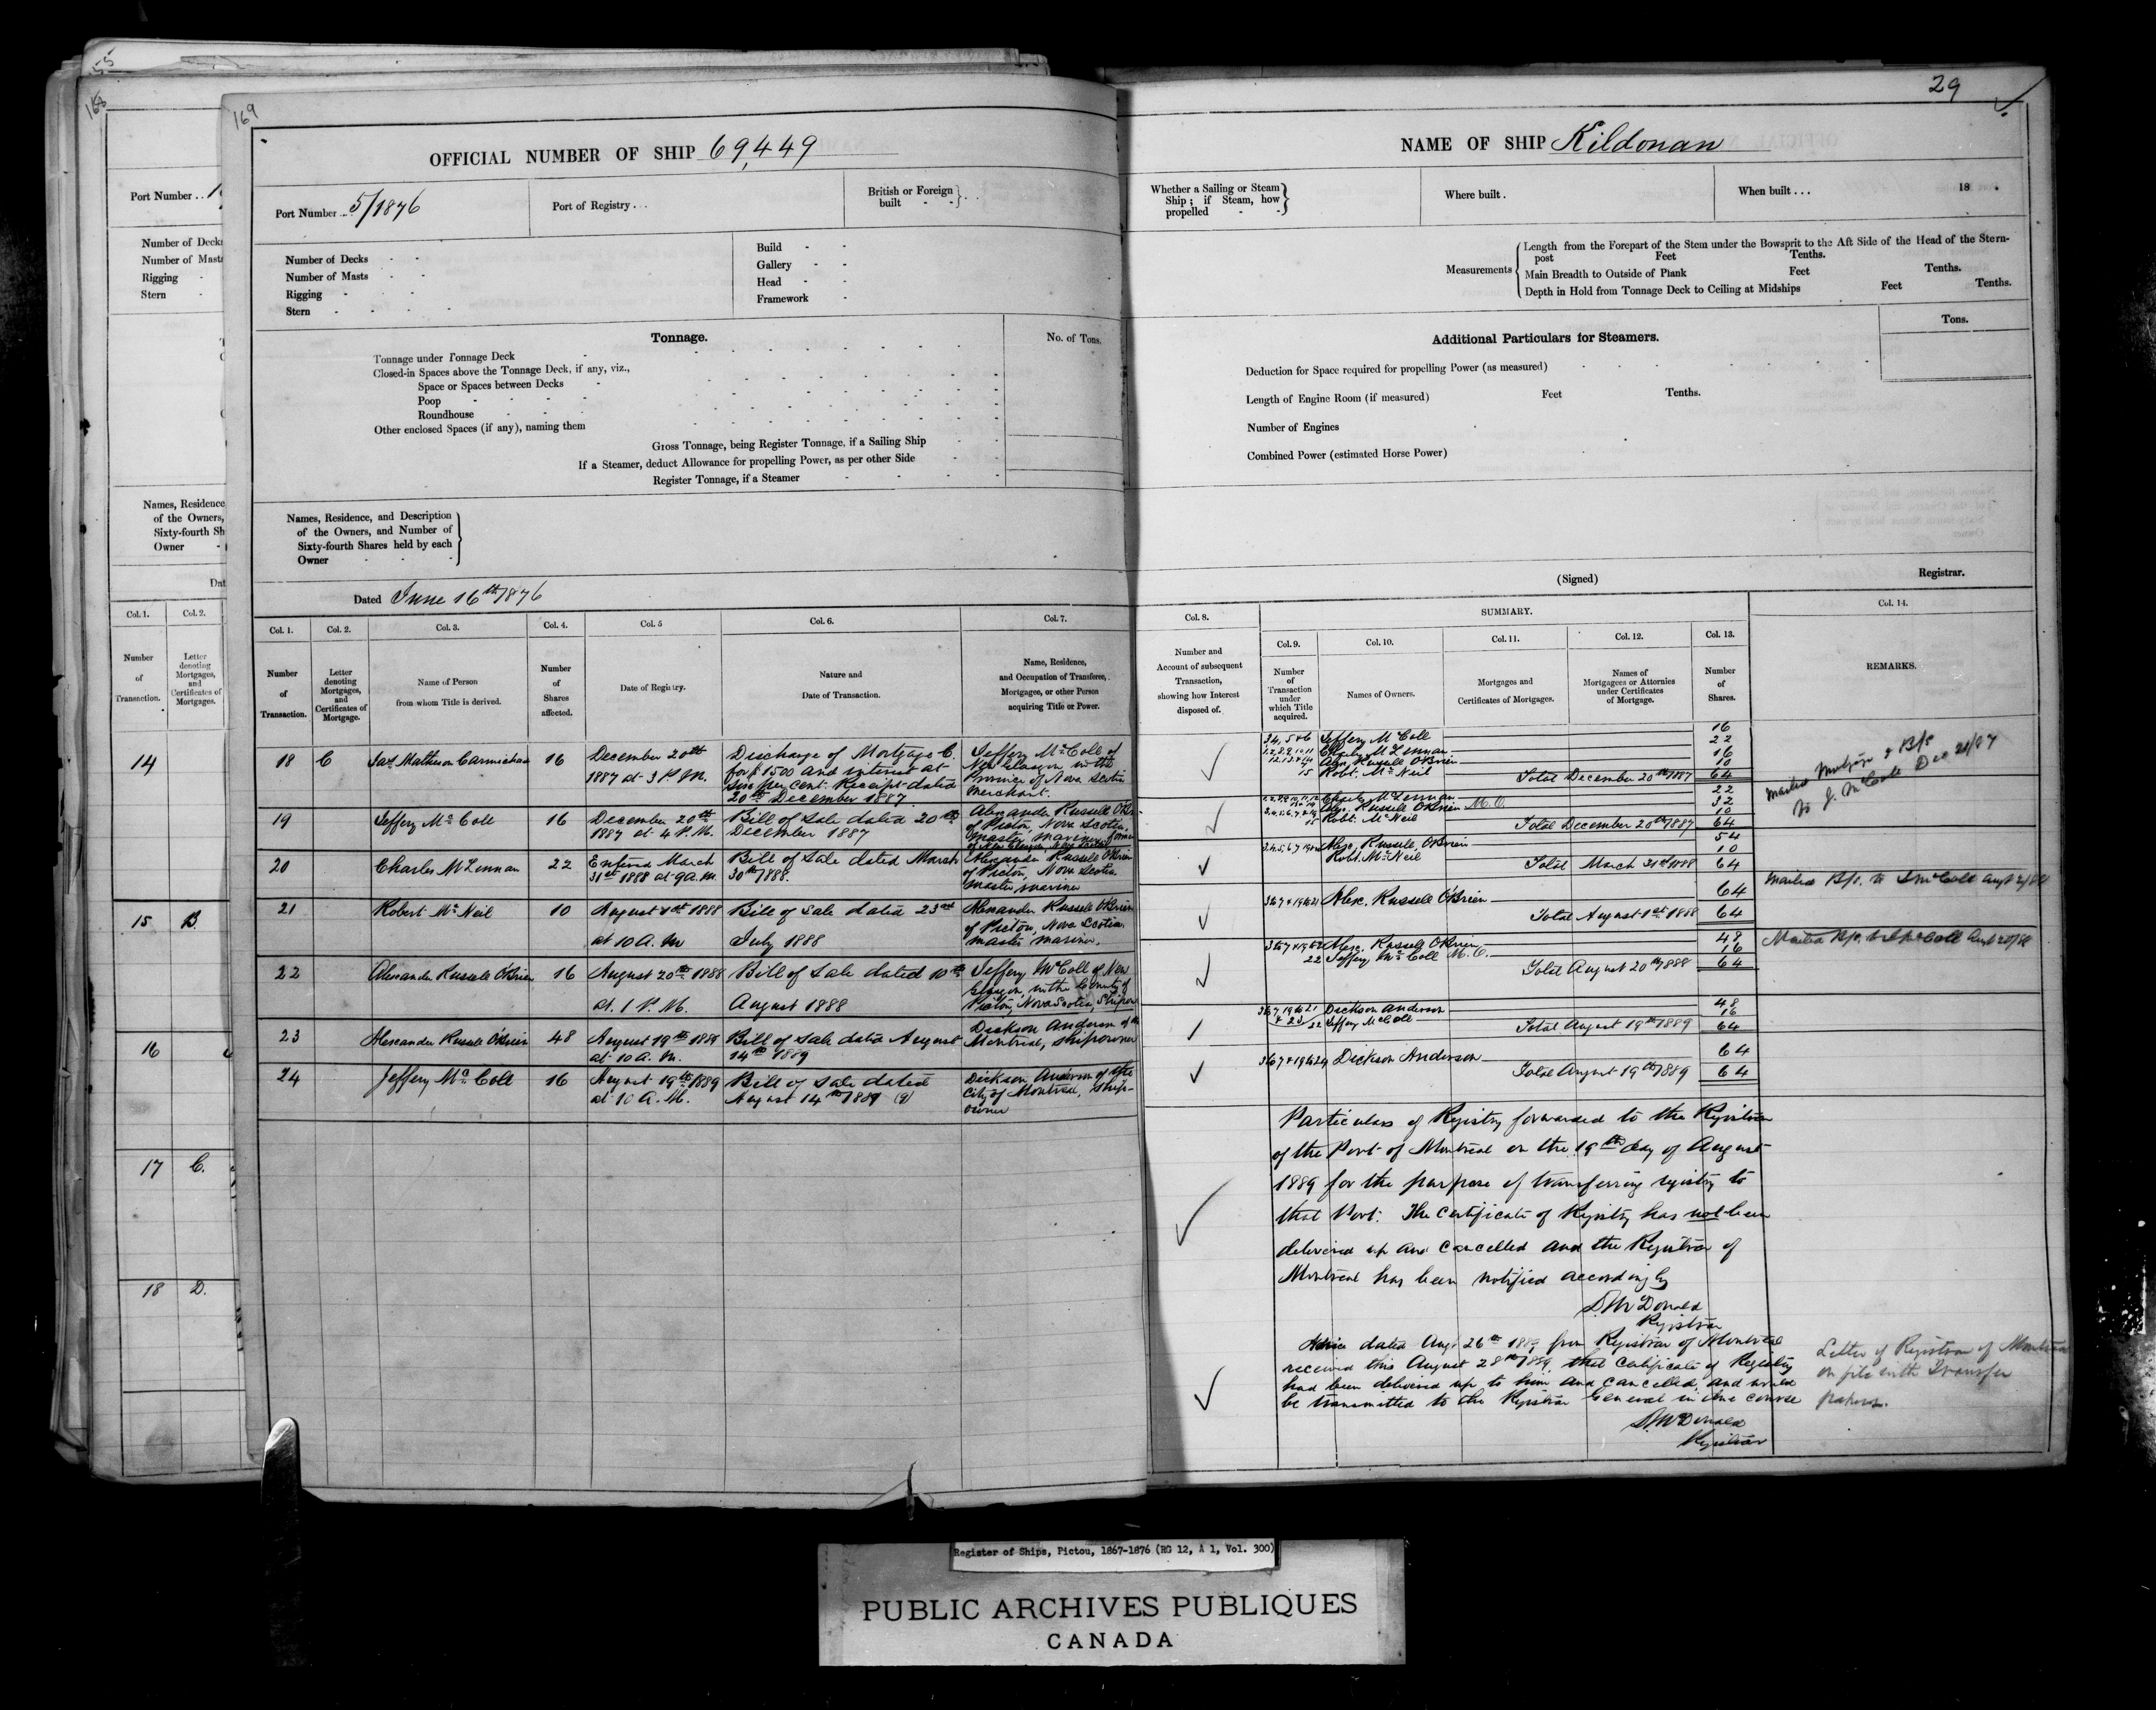 55
168
Port Number . .
Number of Decks
Number of Masts
Rigging
Stern
Names, Residence
of the Owners,
Sixty-fourth Sh
Owner
Dat
Col. 1. Col. 2.
Number of Transaction.
Letter denoting Mortgages, and Certificates of Mortgages.
14
15 B.
16
17 C.
18 D.
169
OFFICIAL NUMBER OF SHIP 69,449
Port Number ... 5/1876
Port of Registry . . .
British or Foreign built
Number of Decks
Number of Masts
Rigging
Stern
Build
Gallery
Head
Framework
Tonnage.
No. of Tons.
Tonnage under Tonnage Deck
Closed-in Spaces above the Tonnage Deck, if any, viz.,
Space or Spaces between Decks
Poop
Roundhouse
Other enclosed Spaces (if any), naming them
Gross Tonnage, being Register Tonnage, if a Sailing Ship
If a Steamer, deduct Allowance for propelling Power, as per other Side
Register Tonnage, if a Steamer
Names, Residence, and Description
of the Owners, and Number of
Sixty-fourth Shares held by each
Owner
Dated June 16th 1876
Col. 1. Col. 2. Col. 3. Col. 4. Col. 5 Col. 6. Col. 7.
Number of Transaction.
Letter denoting Mortgages, and Certificates of Mortgage.
Name of Person from whom Title is derived.
Number of Shares affected.
Date of Registry.
Nature and Date of Transaction.
Name, Residence, and Occupation of Transferee, Mortgagee, or other Person acquiring Title or Power.
18 C Jas Matheson Carmichael 16
December 20th
1887 at 3 P.M.
Discharge of Mortgage C.
for $1500 and interest at
six per cent. Receipt dated
20th December 1887
Jeffery McColl of
New Glasgow in the
Province of Nova Scotia
Merchant.
19 Jeffery Mc Coll 16
December 20th
1887 at 4 P.M.
Bill of Sale dated 20th
December 1887
Alexander Russell O'Brien
of Pictou, Nova Scotia.
Master Mariner
20 Charles McLennan 22
Entered March
31st 1888 at 9 a.m.
Bill of Sale dated March
30th 1888.
Alexander Russell O'Brien
of Pictou, Nova Scotia
Master Mariner
21 Robert Mc Neil 10
August 1st 1888
at 10 A.M
Bill of Sale dated 23rd
July 1888
Alexander Russell O'Brien
of Pictou, Nova Scotia
Master Mariner.
22 Alexander Russell O'Brien 16
August 20th 1888
at 1 P.M.
Bill of Sale dated 10th
August 1888
Jeffery McColl of New
Glasgow, in the County of
Pictou, Nova Scotia, Shipowner
23 Alexander Russell O'Brien 48
August 19th 1889
at 10 a.m.
Bill of Sale dated August
14th 1889
Dickson Anderson of
Montreal, shipowner
24 Jeffery Mc Coll 16
August 19th 1889
at 10 A.M.
Bill of Sale dated
August 14th 1889
Dickson Anderson of the
City of Montreal, Ship-
owner
29
NAME OF SHIP Kildonan
Whether a Sailing or Steam
Ship; if Steam, how
propelled
Where built.
When built . . . 18 .
Measurements
Length from the Forepart of the Stem under the Bowsprit to the Aft Side of the Head of the Stern-
post Feet Tenths.
Main Breadth to Outside of Plank Feet Tenths.
Depth in Hold from Tonnage Deck to Ceiling at Midships Feet Tenths.
Additional Particulars for Steamers.
Tons.
Deduction for Space required for propelling Power (as measured)
Length of Engine Room (if measured) Feet Tenths.
Number of Engines
Combined Power (estimated Horse Power)
(Signed) Registrar.
Col. 8. SUMMARY. Col. 14.
Col. 9. Col. 10. Col. 11. Col. 12. Col. 13.
Number and Account of subsequent Transaction, showing how Interest disposed of.
Number of Transaction under which Title acquired.
Names of Owners.
Mortgages and Certificates of Mortgages.
Names of Mortgagees or Attornies under Certificates of Mortgage.
Number of Shares.
REMARKS.
3,4,5&6 Jeffery McColl 16
Charles McLennan 22
Alex. Russell O'Brien 16
15 Robt. McNeil 10
Total December 20th 1887 64
Charles McLennan 22
Alex. Russell O'Brien M.O. 32
15 Robt. McNeil 10
Total December 20th 1887 64
Alex. Russell O'Brien 54
Robt. McNeil 10
Total March 31st 1888 64
Alex. Russell O'Brien 64
Total August 1st 1888 64
Alex. Russell O'Brien 48
22 Jeffery McColl M.O. 16
Total August 20th 1888 64
Dickson Anderson 48
22 Jeffery McColl 16
Total August 19th 1889 64
Dickson Anderson 64
Total August 19th 1889 64
Mailed Mortgage & B/s
to J. McColl Dec 21/87
Particulars of Registry forwarded to the Registrar
of the Port of Montreal on the 19th day of August
1889 for the purpose of transferring registry to
that Port. The Certificate of Registry has not been
delivered up and cancelled and the Registrar of
Montreal has been notified accordingly
D. McDonald
Registrar
Advice dated Aug 26th 1889 from Registrar of Montreal
received this August 28th 1889, that Certificate of Registry
had been delivered up to him and cancelled, and would
be transmitted to the Registrar General in due course
D. McDonald
Registrar
Letter of Registrar of Montreal
on file with Transfer
papers.
Register of Ships, Pictou, 1867-1876 (RG 12, A 1, Vol. 300)
PUBLIC ARCHIVES PUBLIQUES
CANADA